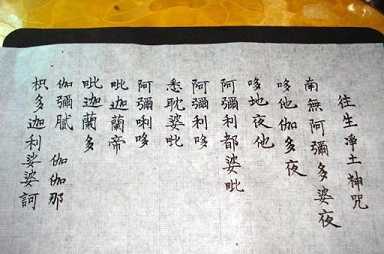 往生净土神咒
南無阿彌多婆夜
哆他伽多夜
哆地夜他
阿彌利都婆毗
阿彌利哆
悉耽婆毗
阿彌唎哆
毗迦蘭帝
毗迦蘭多
伽彌膩 伽伽那
枳多迦利娑婆訶